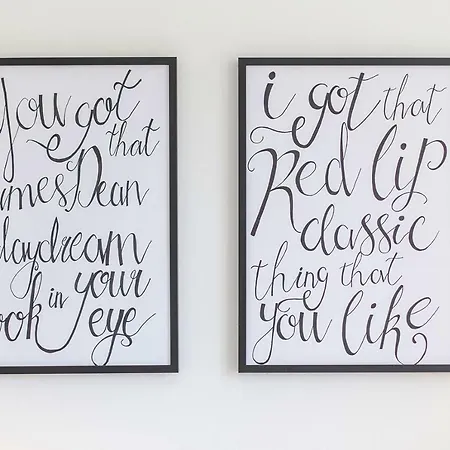 You got
that
ames Dean
daydream
ook in your
eye
i got that
Red lip
classic
thing that
you like